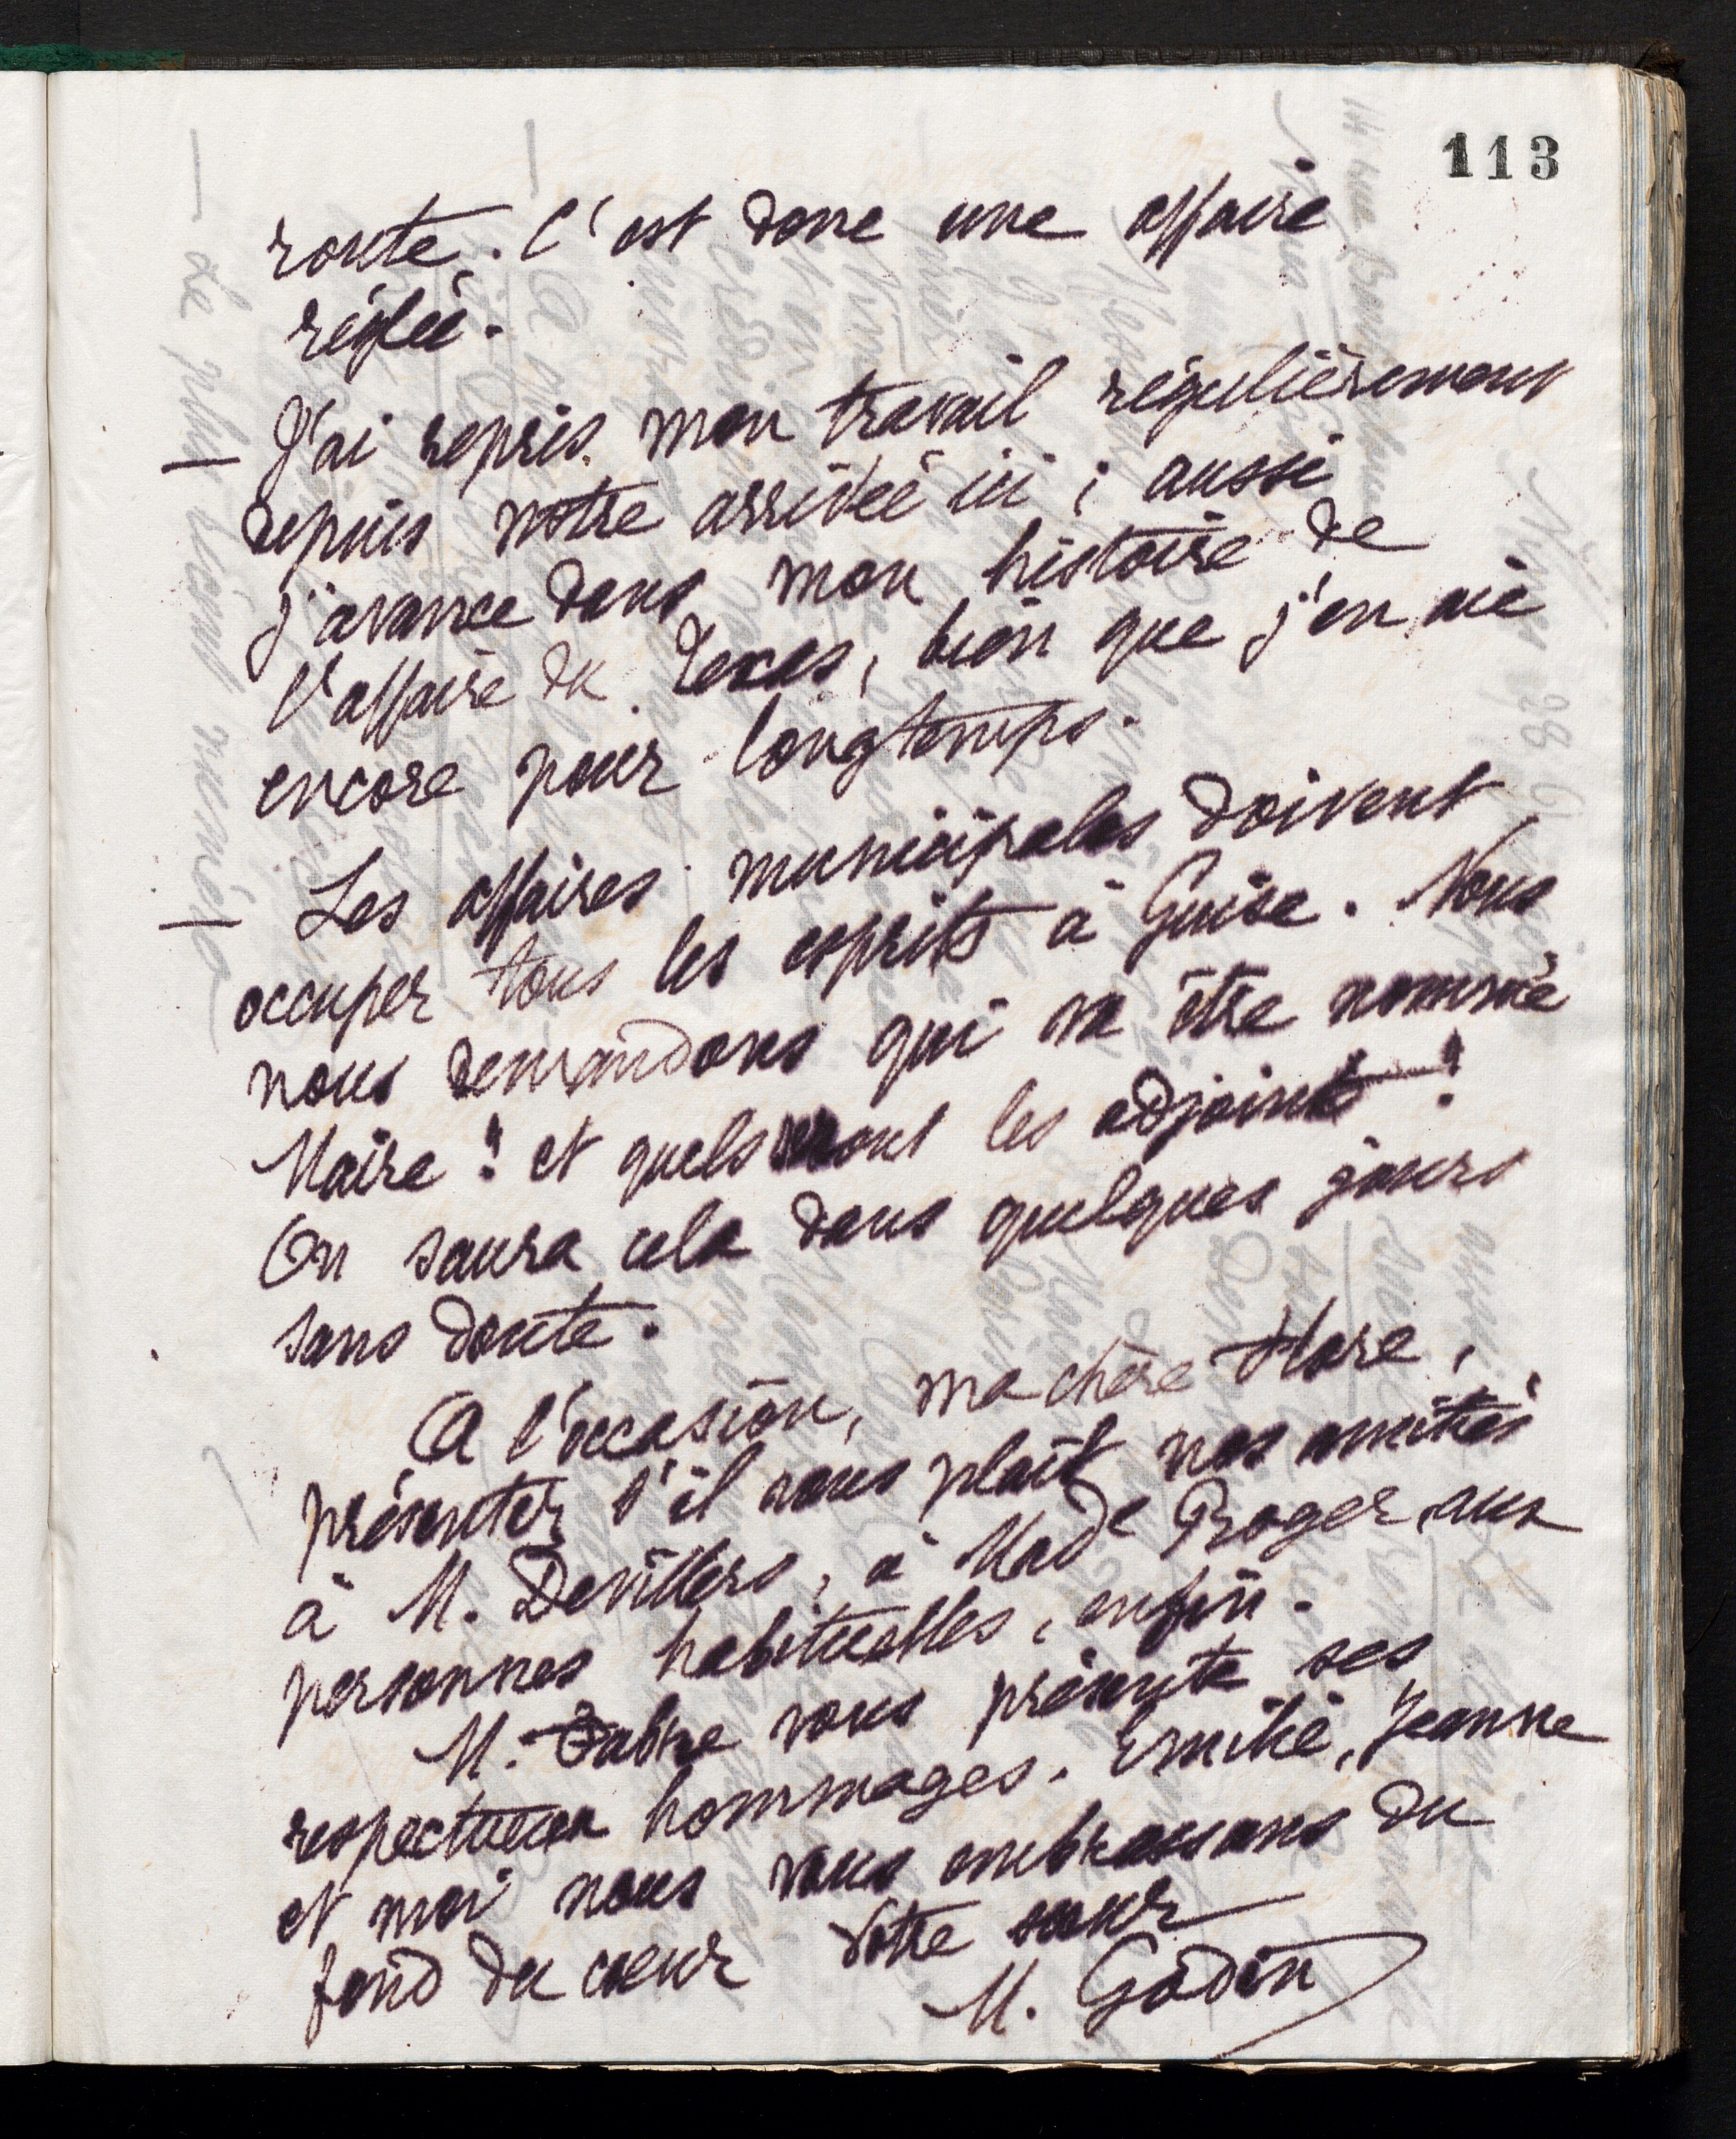 113
route. C'est donc une affaire
réglée.
— J'ai repris mon travail régulièrement
depuis notre arrivée ici ; aussi
j'avance dans mon histoire de
l'affaire du Texas, bien que j'en aie
encore pour longtemps.
— Les affaires municipales doivent
occuper tous les esprits à Guise. Nous
nous demandons qui va être nommé
Maire ? et quels seront les adjoints ?
On saura cela dans quelques jours
sans doute.
A l'occasion, ma chère Flore,
présenter s'il vous plaît nos amitiés
à M. Devillers, à Made Roger, aux
personnes habituelles, enfin.
M. Fabre vous présente ses
respectueux hommages. Emilie, Jeanne
et moi nous vous embrassons du
fond du cœur Votre sœur
M. Godin